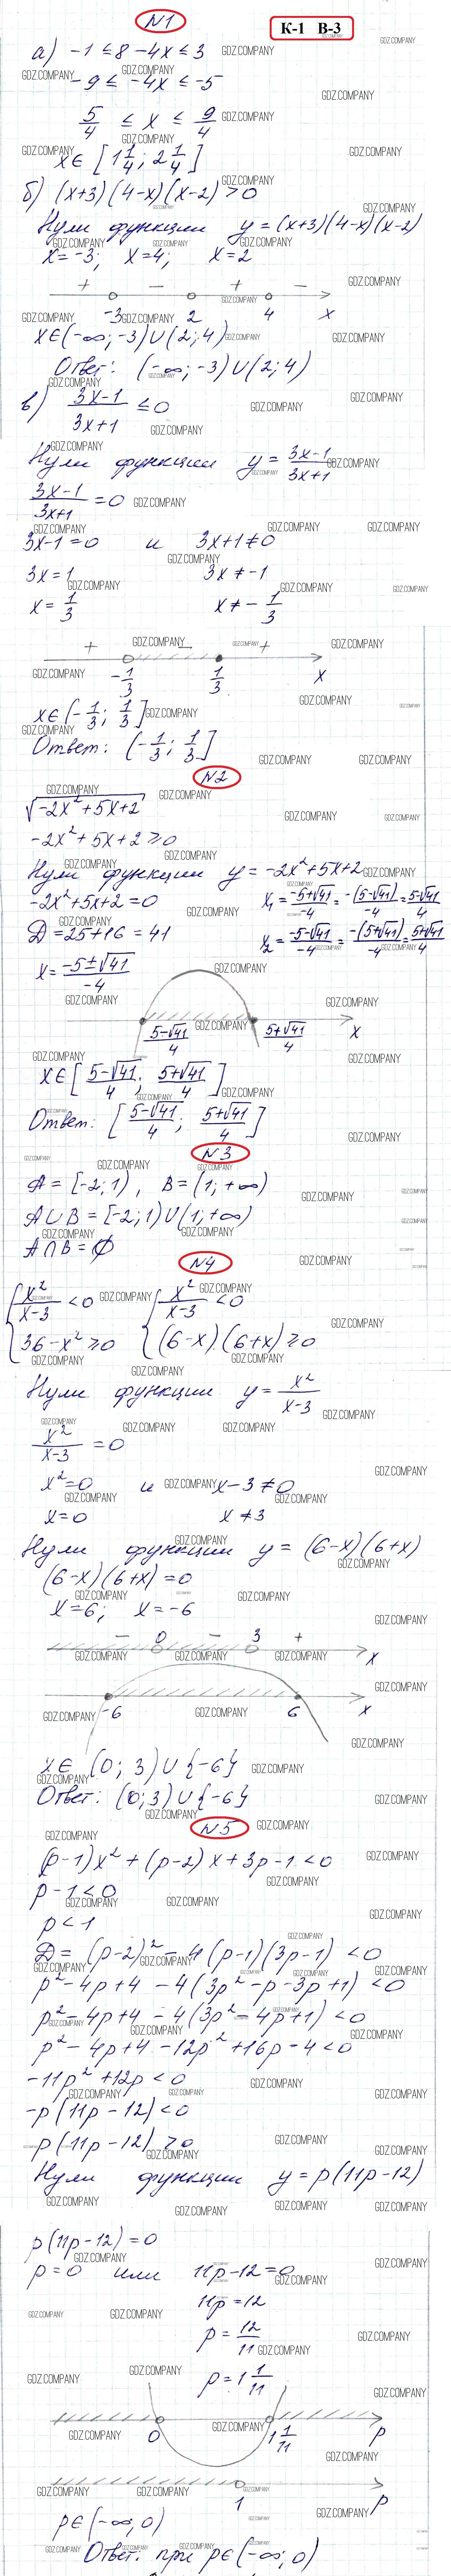 N1
К-1 В-3
а) -1 ≤ 8 - 4x ≤ 3
-9 ≤ -4x ≤ -5
5/4 ≤ x ≤ 9/4
x ∈ [1 1/4; 2 1/4]
б) (x+3)(4-x)(x-2) > 0
Нули функции y = (x+3)(4-x)(x-2)
x = -3; x = 4; x = 2
+ - + -
-3 2 4 x
x ∈ (-∞; -3) ∪ (2; 4)
Ответ: (-∞; -3) ∪ (2; 4)
в) (3x-1)/(3x+1) ≤ 0
Нули функции y = (3x-1)/(3x+1)
(3x-1)/(3x+1) = 0
3x-1 = 0 и 3x+1 ≠ 0
3x = 1 3x ≠ -1
x = 1/3 x ≠ -1/3
+ - +
-1/3 1/3 x
x ∈ (-1/3; 1/3]
Ответ: (-1/3; 1/3]
N2
√(-2x²+5x+2)
-2x²+5x+2 ≥ 0
Нули функции y = -2x²+5x+2
-2x²+5x+2 = 0 x₁ = (-5+√41)/-4 = -(5-√41)/-4 = (5-√41)/4
Д = 25+16 = 41 x₂ = (-5-√41)/-4 = -(5+√41)/-4 = (5+√41)/4
x = (-5±√41)/-4
(5-√41)/4 (5+√41)/4 x
x ∈ [(5-√41)/4; (5+√41)/4]
Ответ: [(5-√41)/4; (5+√41)/4]
N3
A = [-2; 1), B = (1; +∞)
A ∪ B = [-2; 1) ∪ (1; +∞)
A ∩ B = ∅
N4
{ x²/(x-3) < 0 { x²/(x-3) < 0
{ 36 - x² ≥ 0 { (6-x)(6+x) ≥ 0
Нули функции y = x²/(x-3)
x²/(x-3) = 0
x² = 0 и x-3 ≠ 0
x = 0 x ≠ 3
Нули функции y = (6-x)(6+x)
(6-x)(6+x) = 0
x = 6; x = -6
- 0 - 3 +
x
-6 6 x
x ∈ (0; 3) ∪ {-6}
Ответ: (0; 3) ∪ {-6}
N5
(p-1)x² + (p-2)x + 3p-1 < 0
p-1 < 0
p < 1
Д = (p-2)² - 4(p-1)(3p-1) < 0
p² - 4p + 4 - 4(3p² - p - 3p + 1) < 0
p² - 4p + 4 - 4(3p² - 4p + 1) < 0
p² - 4p + 4 - 12p² + 16p - 4 < 0
-11p² + 12p < 0
-p(11p-12) < 0
p(11p-12) > 0
Нули функции y = p(11p-12)
p(11p-12) = 0
p = 0 или 11p-12 = 0
11p = 12
p = 12/11
p = 1 1/11
0 1 1/11 p
1 p
p ∈ (-∞; 0)
Ответ: при p ∈ (-∞; 0)
GDZ.COMPANY